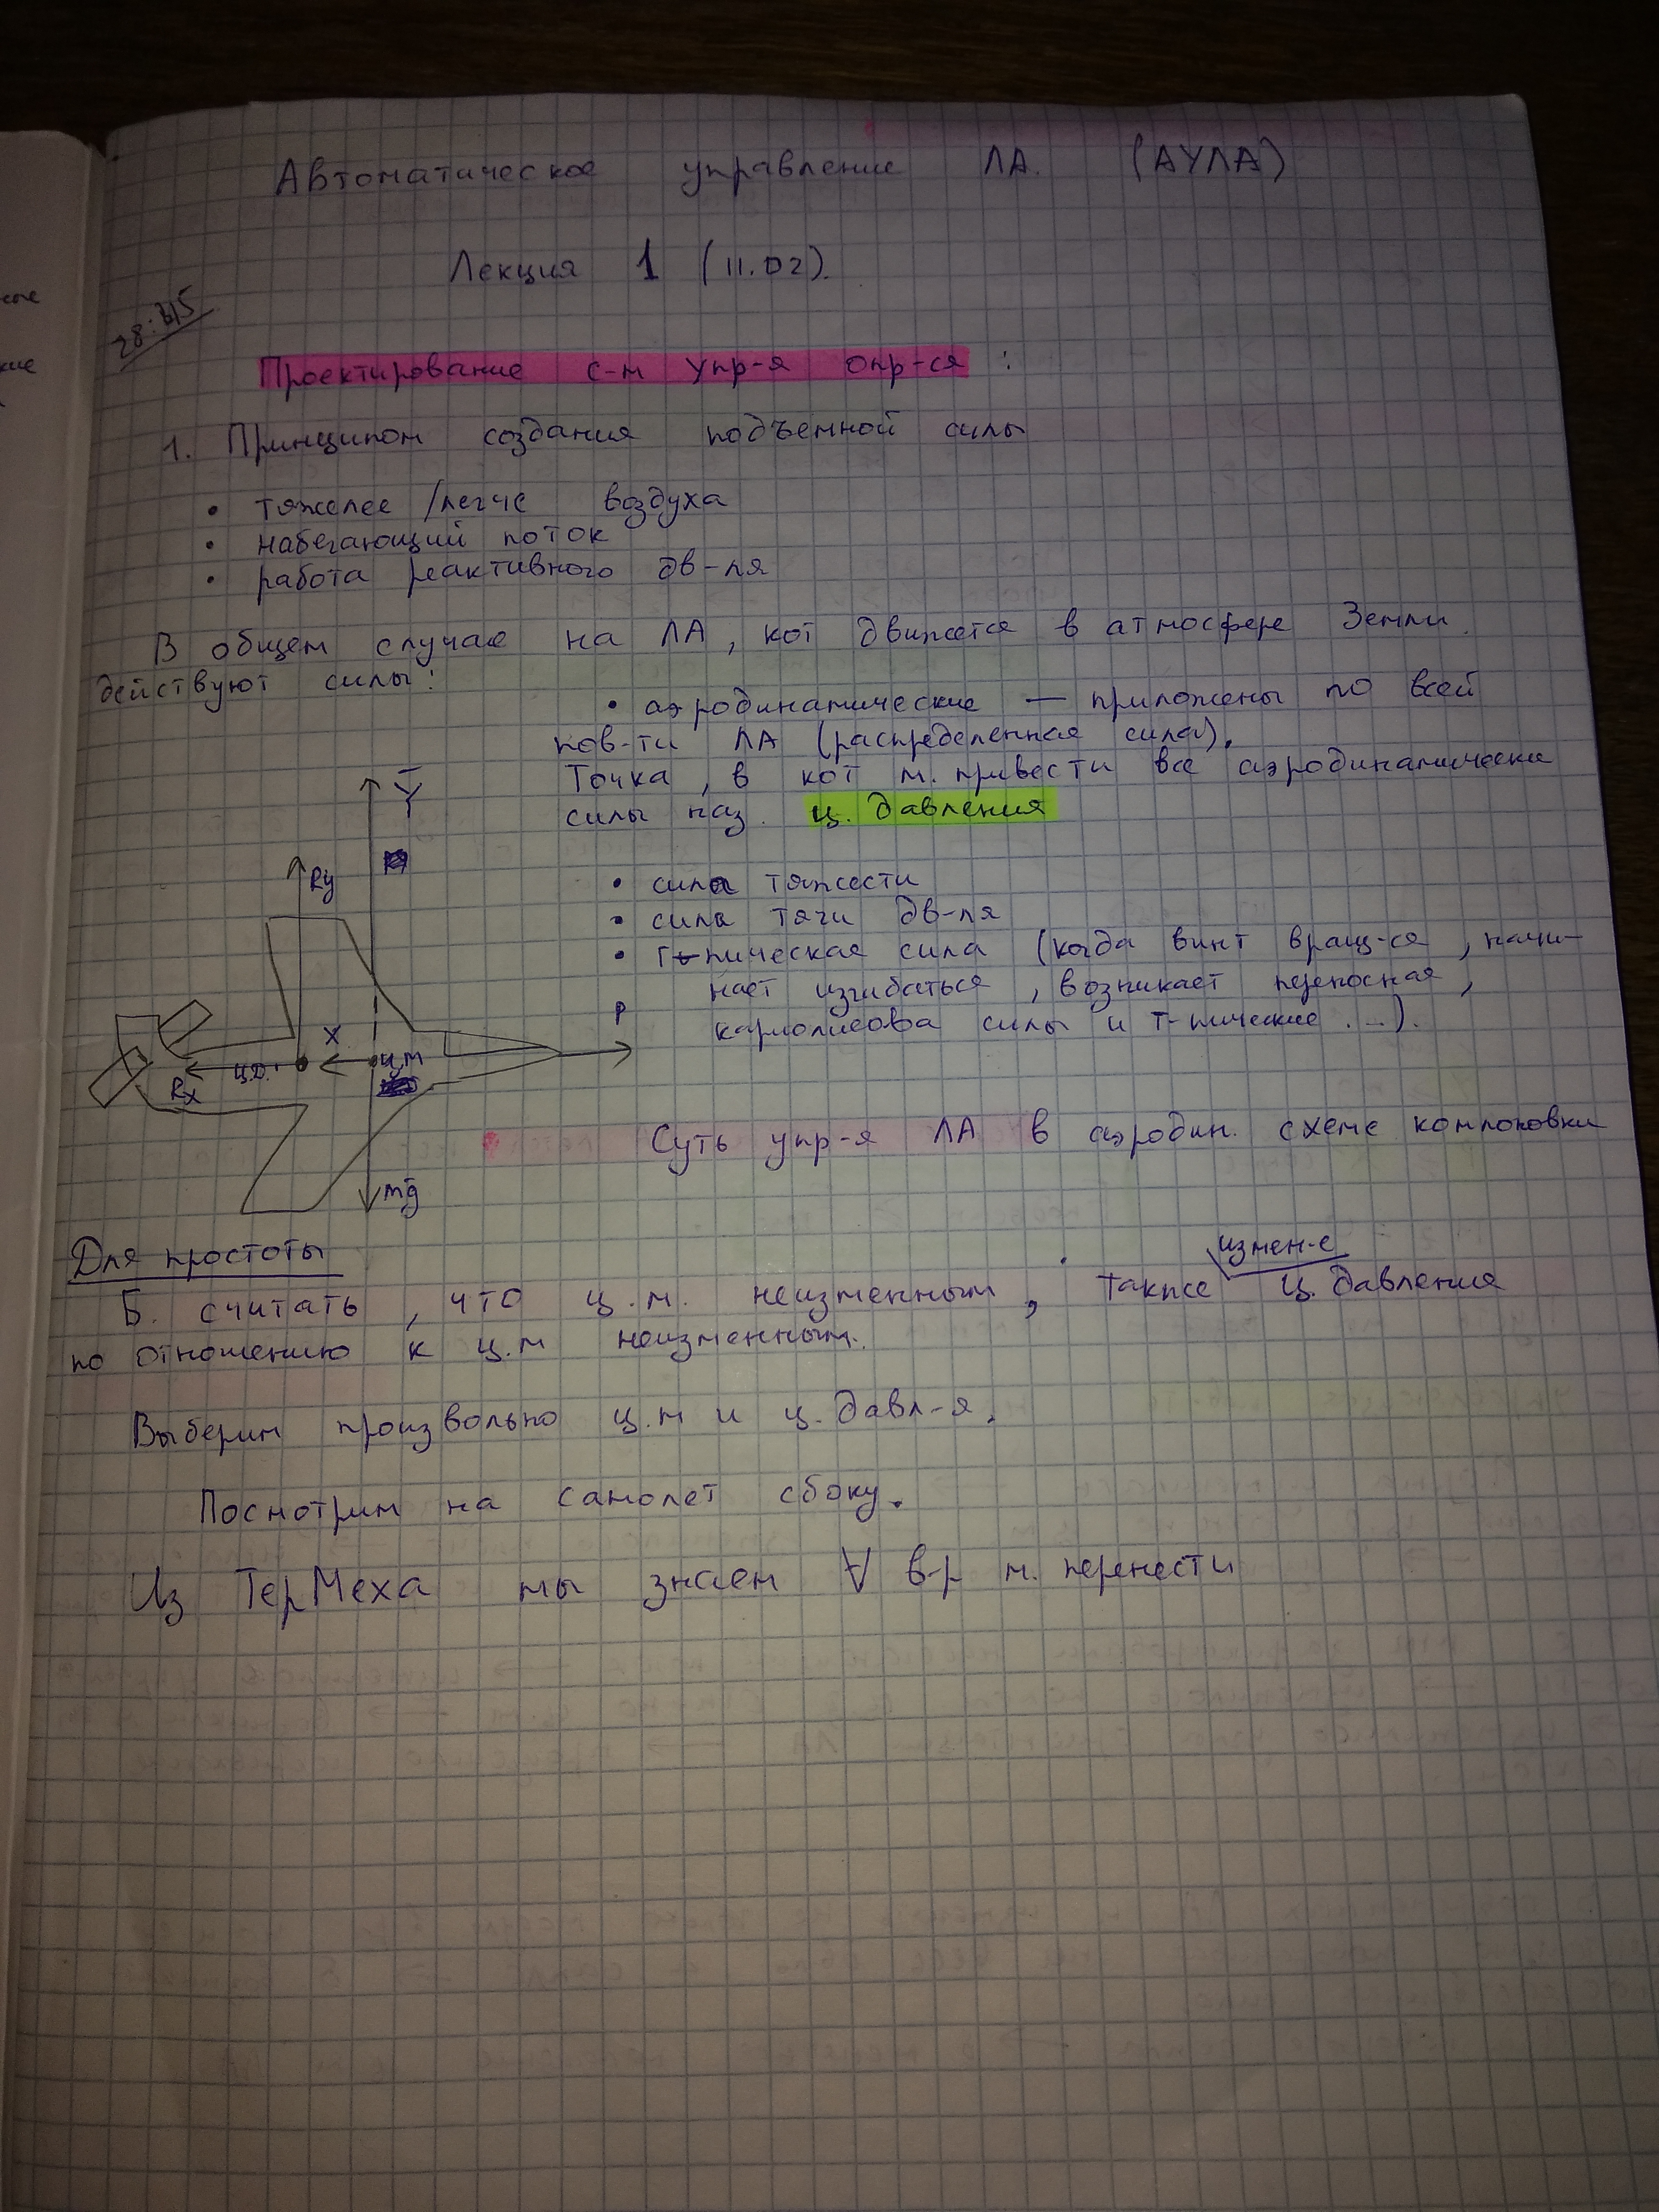 Автоматическое управление ЛА. (АУЛА)
Лекция 1 (11.02).
Проектирование с-м упр-я опр-ся :
1. Принципом создания подъемной силы
• тяжелее /легче воздуха
• набегающий поток
• работа реактивного дв-ля
В общем случае на ЛА, кот движется в атмосфере Земли
действуют силы:
• аэродинамические — приложены по всей
пов-ти ЛА (распределенная сила).
Точка, в кот м. привести все аэродинамически
силы наз. ц. давления
• сила тяжести
• сила тяги дв-ля
• г-пическая сила (когда винт вращ-ся, начи-
нает изгибаться, возникает переносная,
кариолисова силы и г-пические ...).
Y
Ry
P
X
ц.м
ц.д.
Rx
mg
Суть упр-я ЛА в аэродин. схеме компоновки
Для простоты
измен-е
Б. считать, что ц.м. неизменным, также ц. давления
по отношению к ц.м неизменным.
Выберим произвольно ц.м и ц. давл-я.
Посмотрим на самолет сбоку.
Из ТерМеха мы знаем ∀ в-р м. перенести